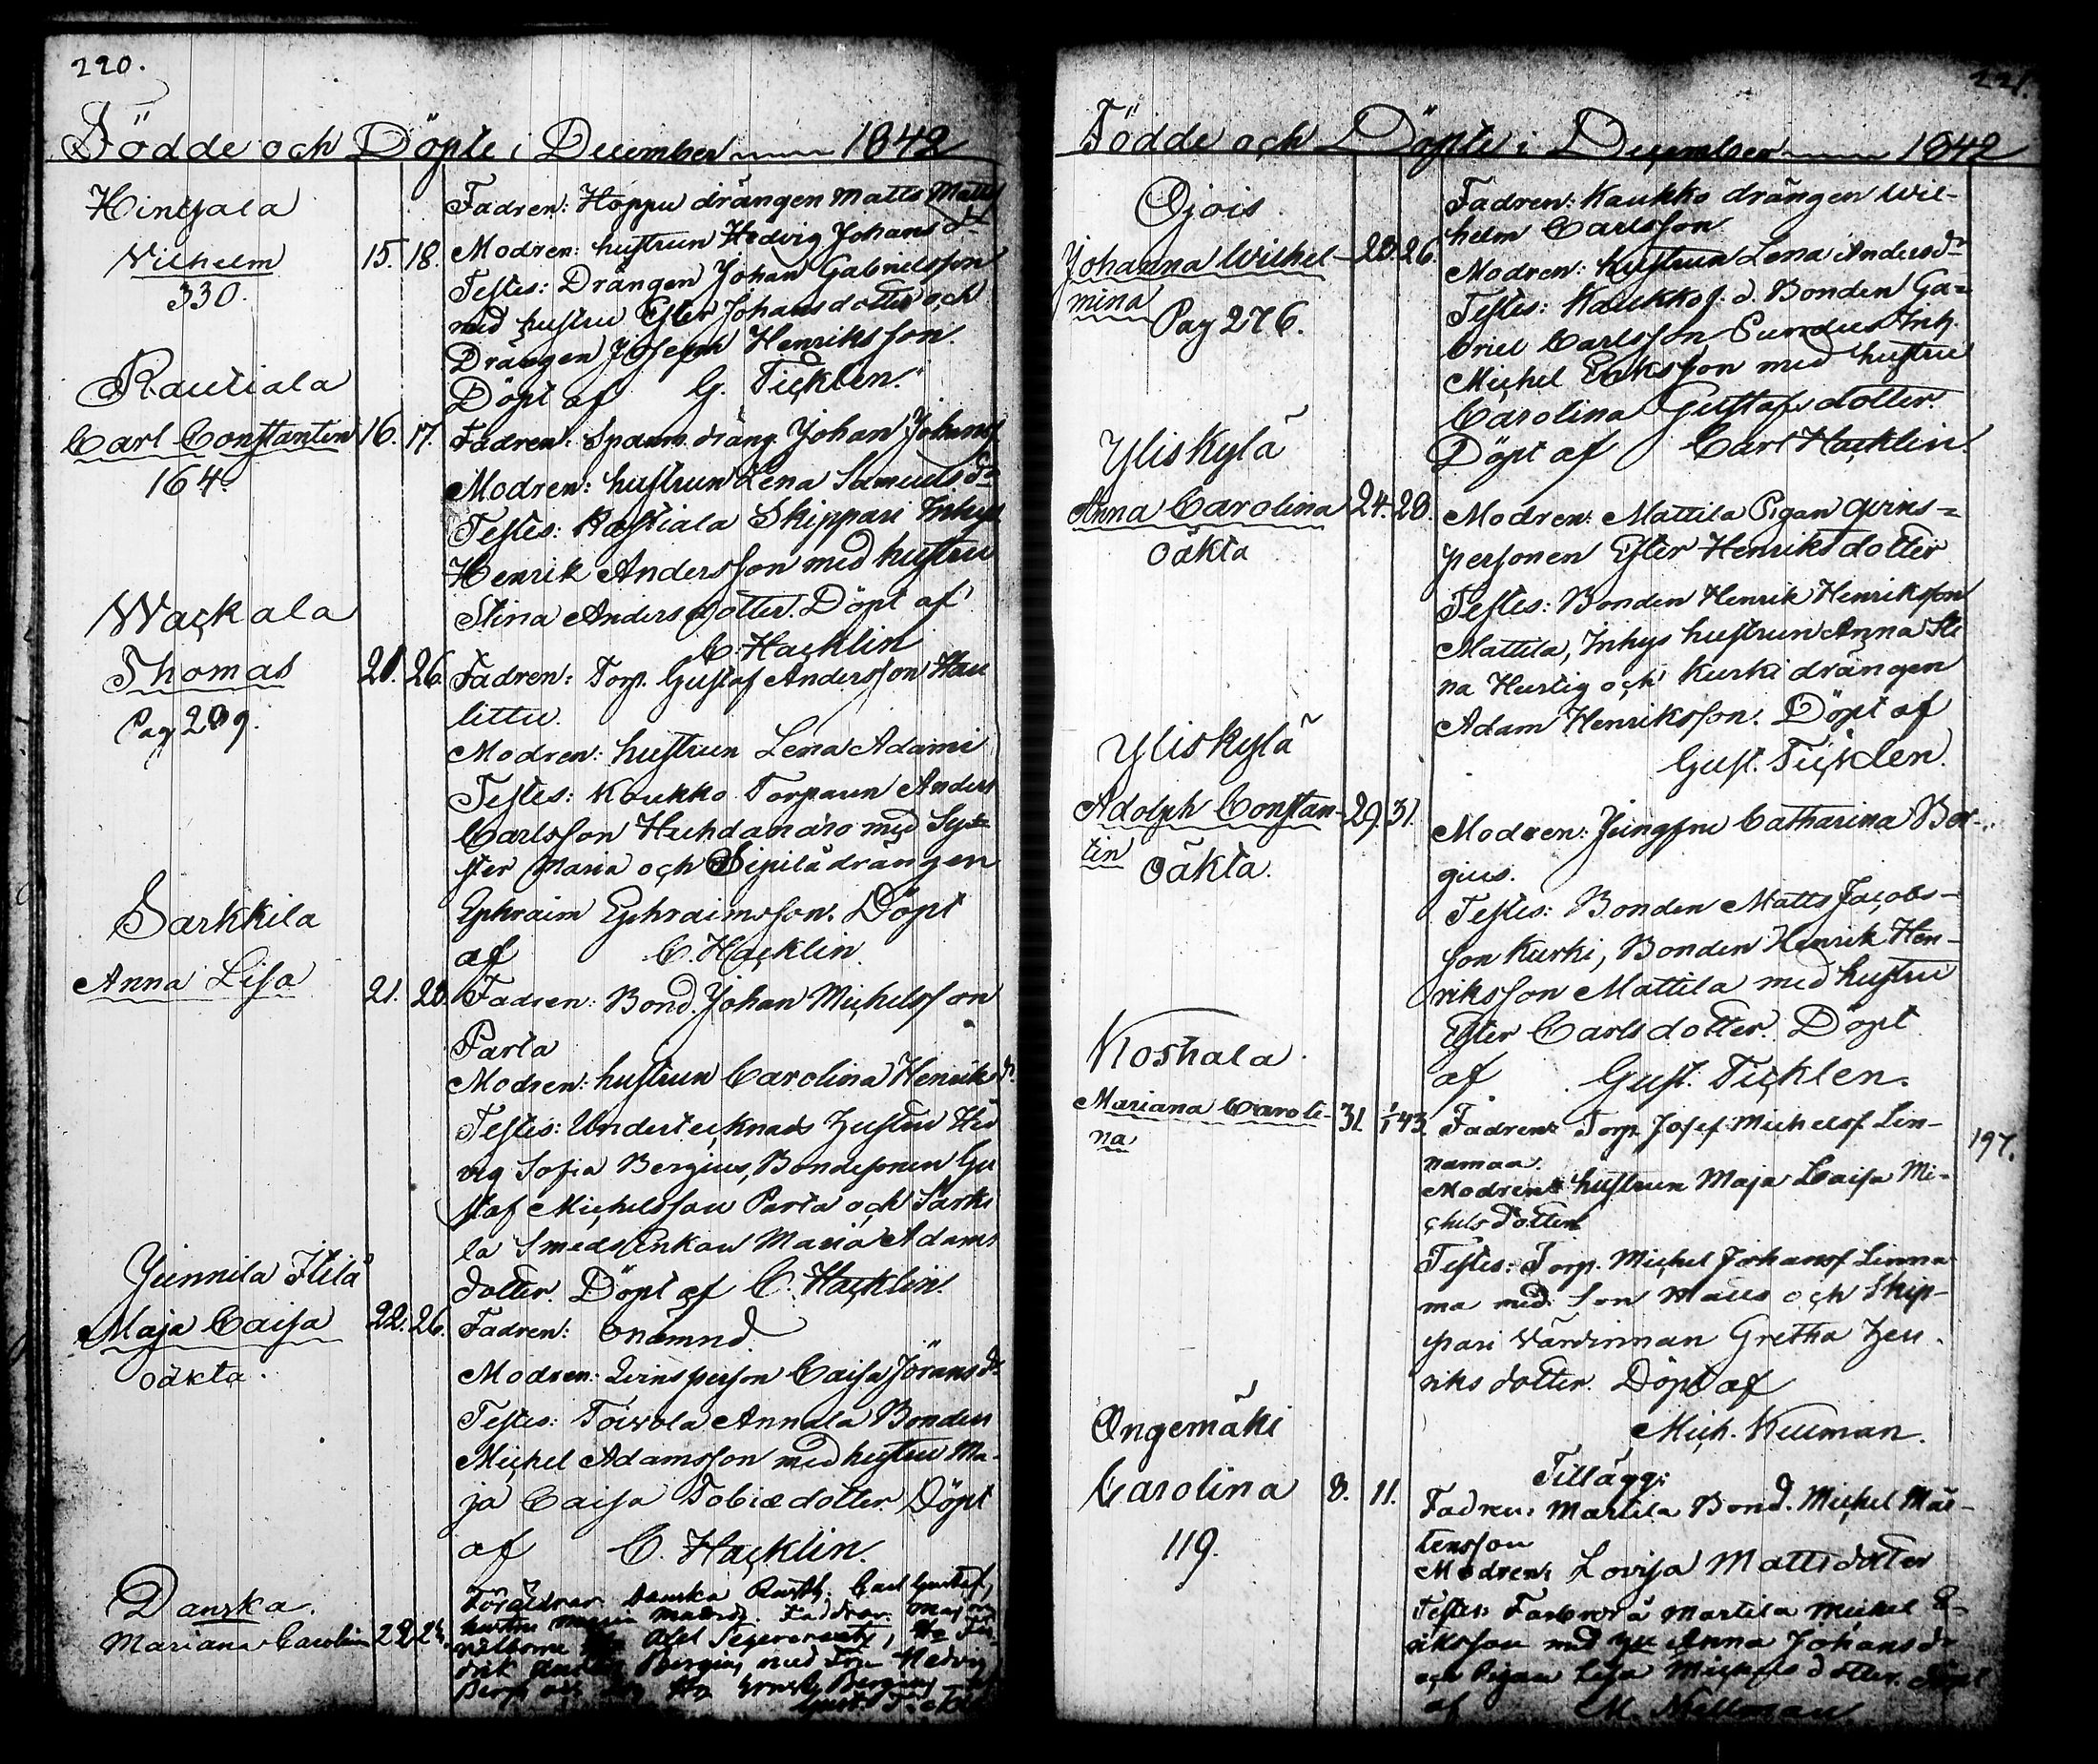 220.
Födde och Döpte i December 1842
Hinsala
Vilhelm 15. 18.
330.
Fadren: Hoppu drängen Matts Matts
Modren: hustrun Hedvig Johans dr
Testes: Drängen Johan Gabrielsson
med hustru Ester Johansdotter och
Drängen Joseph Henriksson.
Döpt af G. Ticklen.
Rautiala
Carl Constantin 16. 17.
164.
Fadren: Spanm. dräng Johan Johans
Modren: hustrun Lena Samuels dr
Testes: Rastiala Skippari Inhys
Henrik Andersson med hustru
Stina Anders dotter. Döpt af
C. Hacklin
Wackala
Thomas 20. 26.
Pag 209.
Fadren: Torp. Gustaf Andersson Hau
littu.
Modren: hustrun Lena Adami
Testes: Koukko Torparen Anders
Carlsson Huhdanaro med Sy
ster Maria och Sipilä drängen
Ephraim Ephraimsson. Döpt
af C. Hacklin.
Sarkkila
Anna Lisa 21. 28.
Fadren: Bond. Johan Michelsson
Parta
Modren: hustrun Carolina Henriks dr
Testes: Undertecknads hustru Hed
vig Sofia Bergius, Bondesonen Gu
staf Michelsson Parta och Sarki
la Smeds Enkan Maria Adams
dotter. Döpt af C. Hacklin.
Junnila Itilä
Maja Caisa 22. 26.
oäkta.
Fadren: onämnd.
Modren: Qvinsperson Caisa Jörans dr
Testes: Toivola Annala Bonden
Michel Adamsson med hustru Ma-
ja Caisa Tobiæ dotter Döpt
af C. Hacklin.
Danska.
Mariana Carolina 22
Föräldrar Danska Carl Gustaf,
hustru Maria Faddrar
Axel
Bergius med Fru Hedvig
Bergius
Gust.
221.
Födde och Döpte i December 1842
Ojois
Johanna Wilhel- 20. 26.
mina
Pag 276.
Fadren: Kaukko drängen Wil-
helm Carlsson
Modren: hustrun Lena Anders dr
Testes: Kaukko f. d. Bonden Ga-
briel Carlsson Inh.
Michel Eriksson med hustru
Carolina Gustafsdotter.
Döpt af Carl Hacklin.
Yliskylä
Anna Carolina 24. 28.
oäkta
Modren: Mattila Pigan qvins-
personen Ester Henriksdotter
Testes: Bonden Henrik Henriksson
Mattila, Inhys hustrun Anna Sti
na Hurtig och Kurki drängen
Adam Henriksson. Döpt af
Gust. Ticklen.
Yliskylä
Adolph Constan- 29. 31.
tin
Oäkta.
Modren: Jungfru Catharina Ber-
gius.
Testes: Bonden Matts Jacobs-
son Kurki, Bonden Henrik Hen-
riksson Mattila med hustru
Ester Carlsdotter. Döpt
af Gust. Ticklen.
Koskala
Mariana Caroli- 31. 1/1 43.
na
Fadren: Torp. Josef Michelss. Lin-
namaa.
Modren: hustrun Maja Caisa Mi-
chelsdotter
197.
Testes: Torp. Michel Johanss. Linna
ma med Son Matts och Skip-
pari Värdinnan Gretha Hen-
riksdotter. Döpt af
Mich. Neuman.
Ongemäki
Carolina 8. 11.
119.
Tillägg:
Fadren: Martila Bond. Michel Mår-
tensson
Modren: Lovisa Mattsdotter
Testes: Martila Michel E-
riksson med hu Anna Johans dr
och Pigan Lisa Michelsdotter. Döpt
af M.